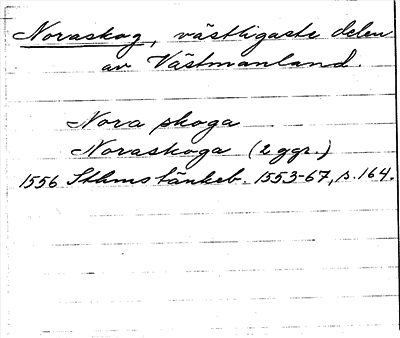 Noraskog, västligaste delen
av Västmanland.
Nora skoga
Noraskoga (2 ggr.)
1556 Sthms tänkeb. 1553-67, s. 164.